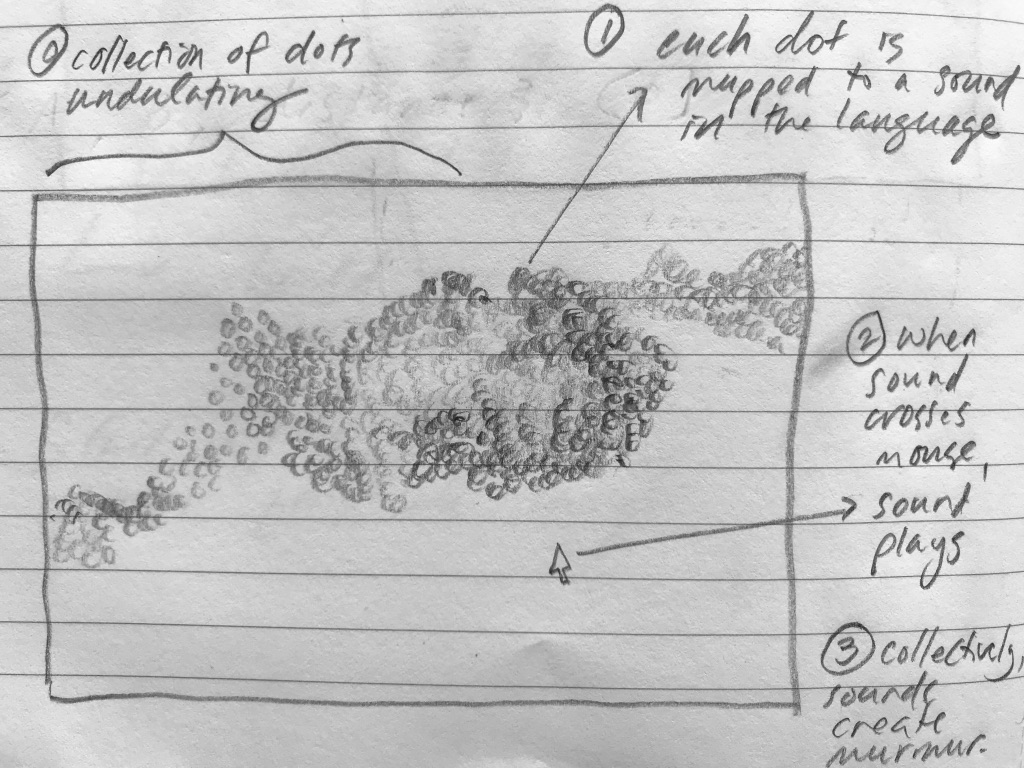 ⓪ collection of dots
undulating
① each dot is
mapped to a sound
in the language
② when
sound
crosses
mouse,
sound
plays
③ collectively,
sounds
create
murmur.